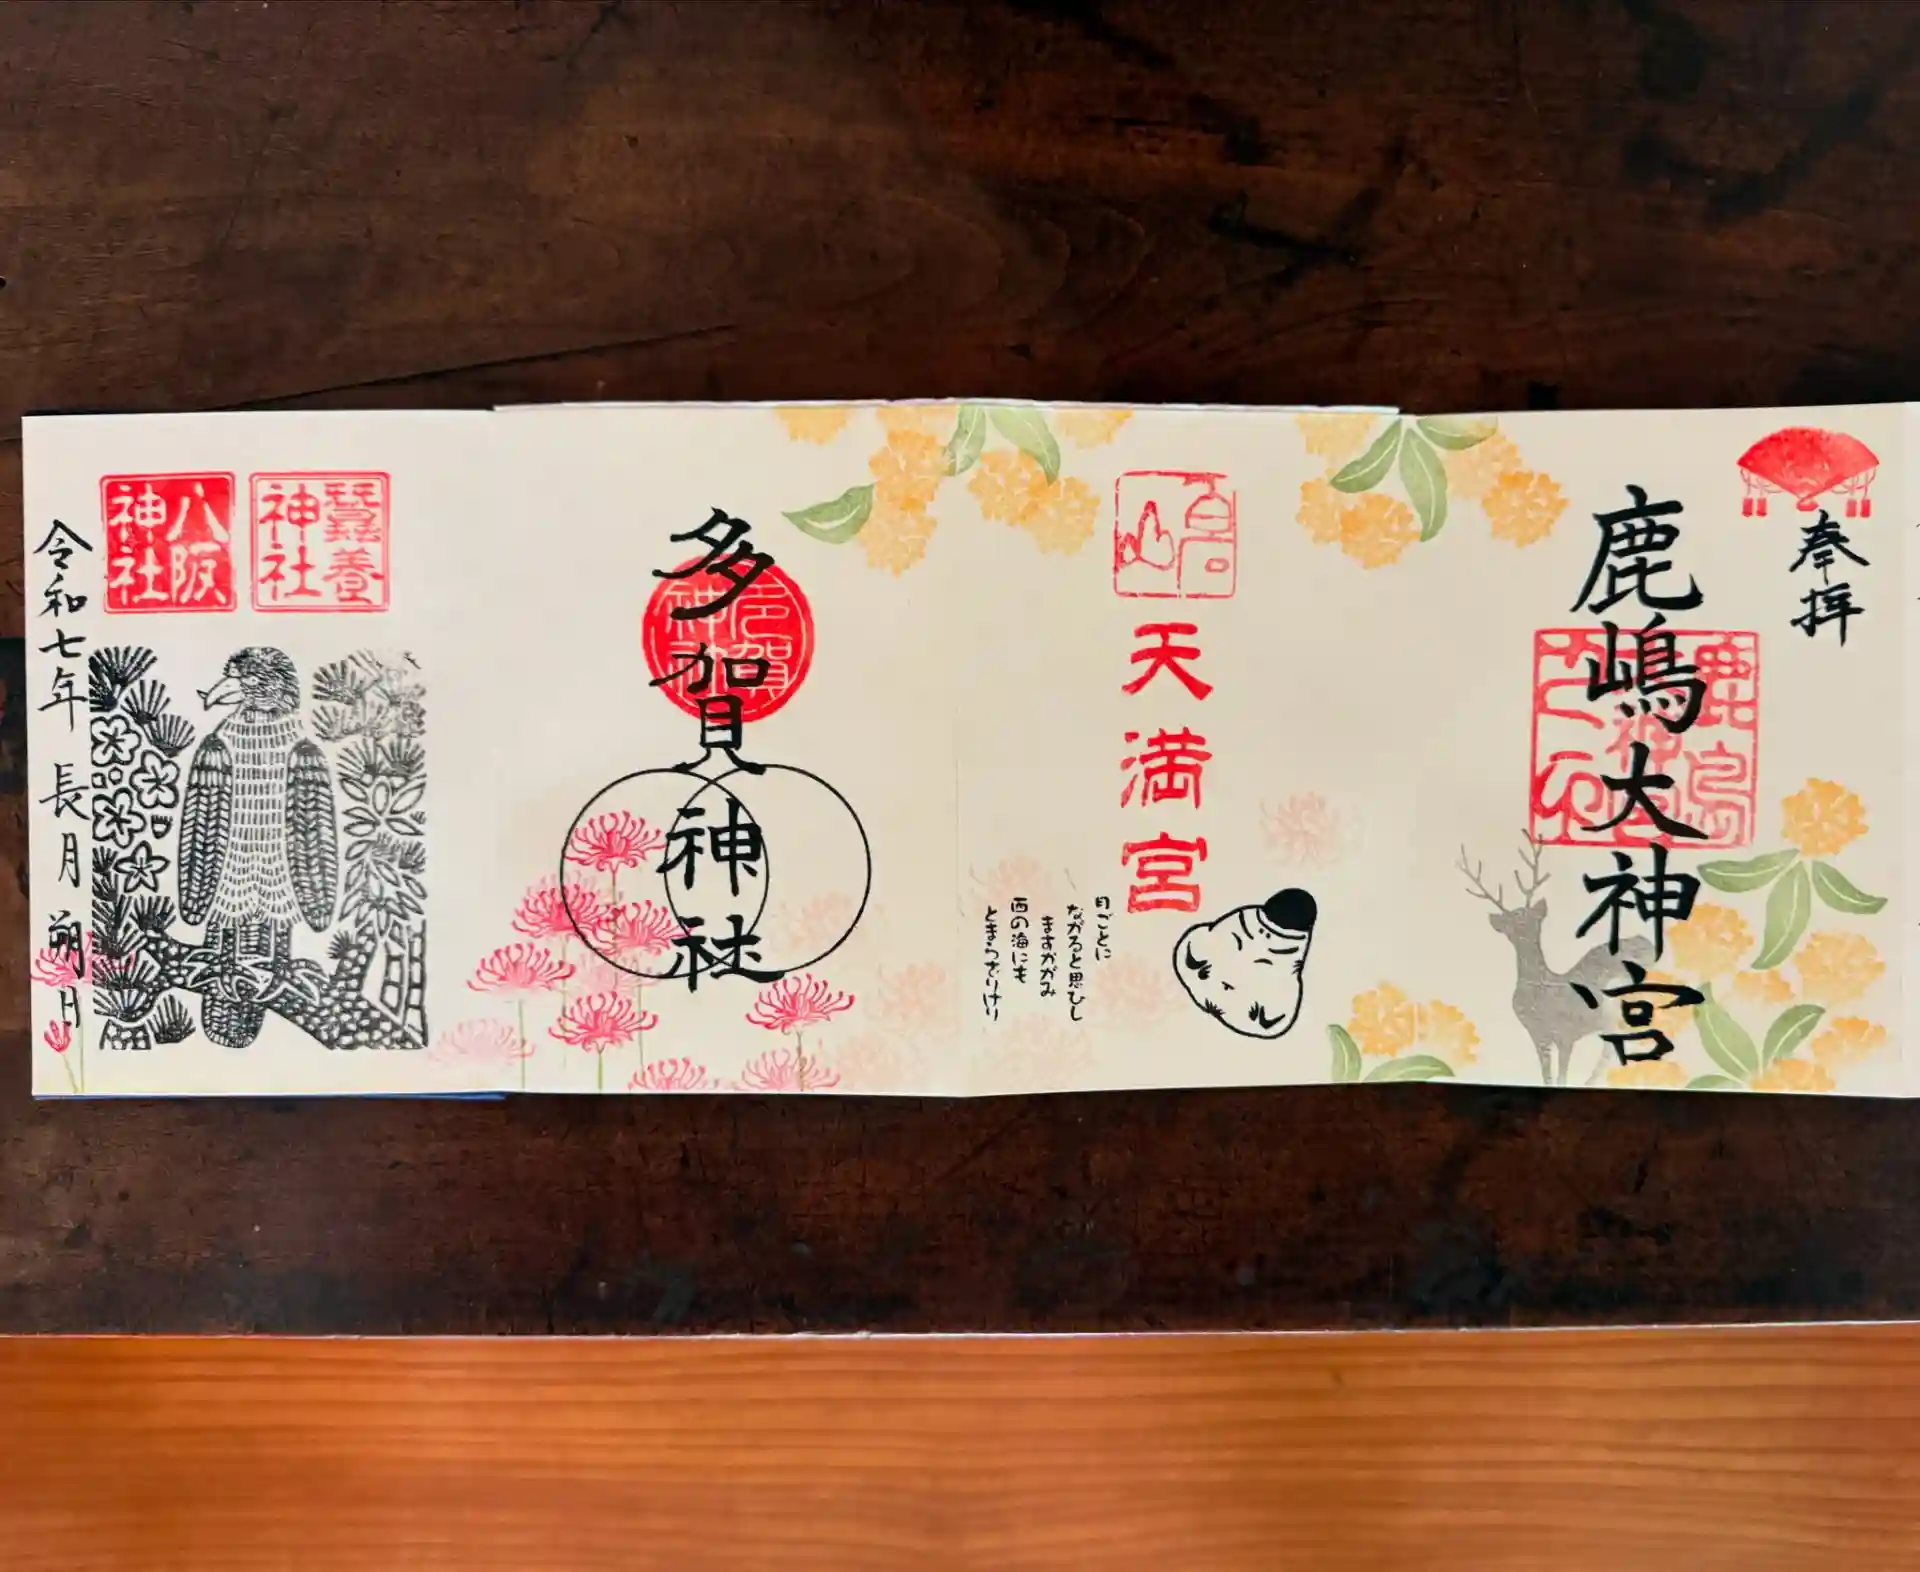 奉拝
鹿嶋大神宮
天満宮
月ごとに
ながると思ひし
ますかがみ
西の海にも
とまらざりけり
多賀神社
多賀神社
蠶養神社
八阪神社
令和七年 長月 朔日